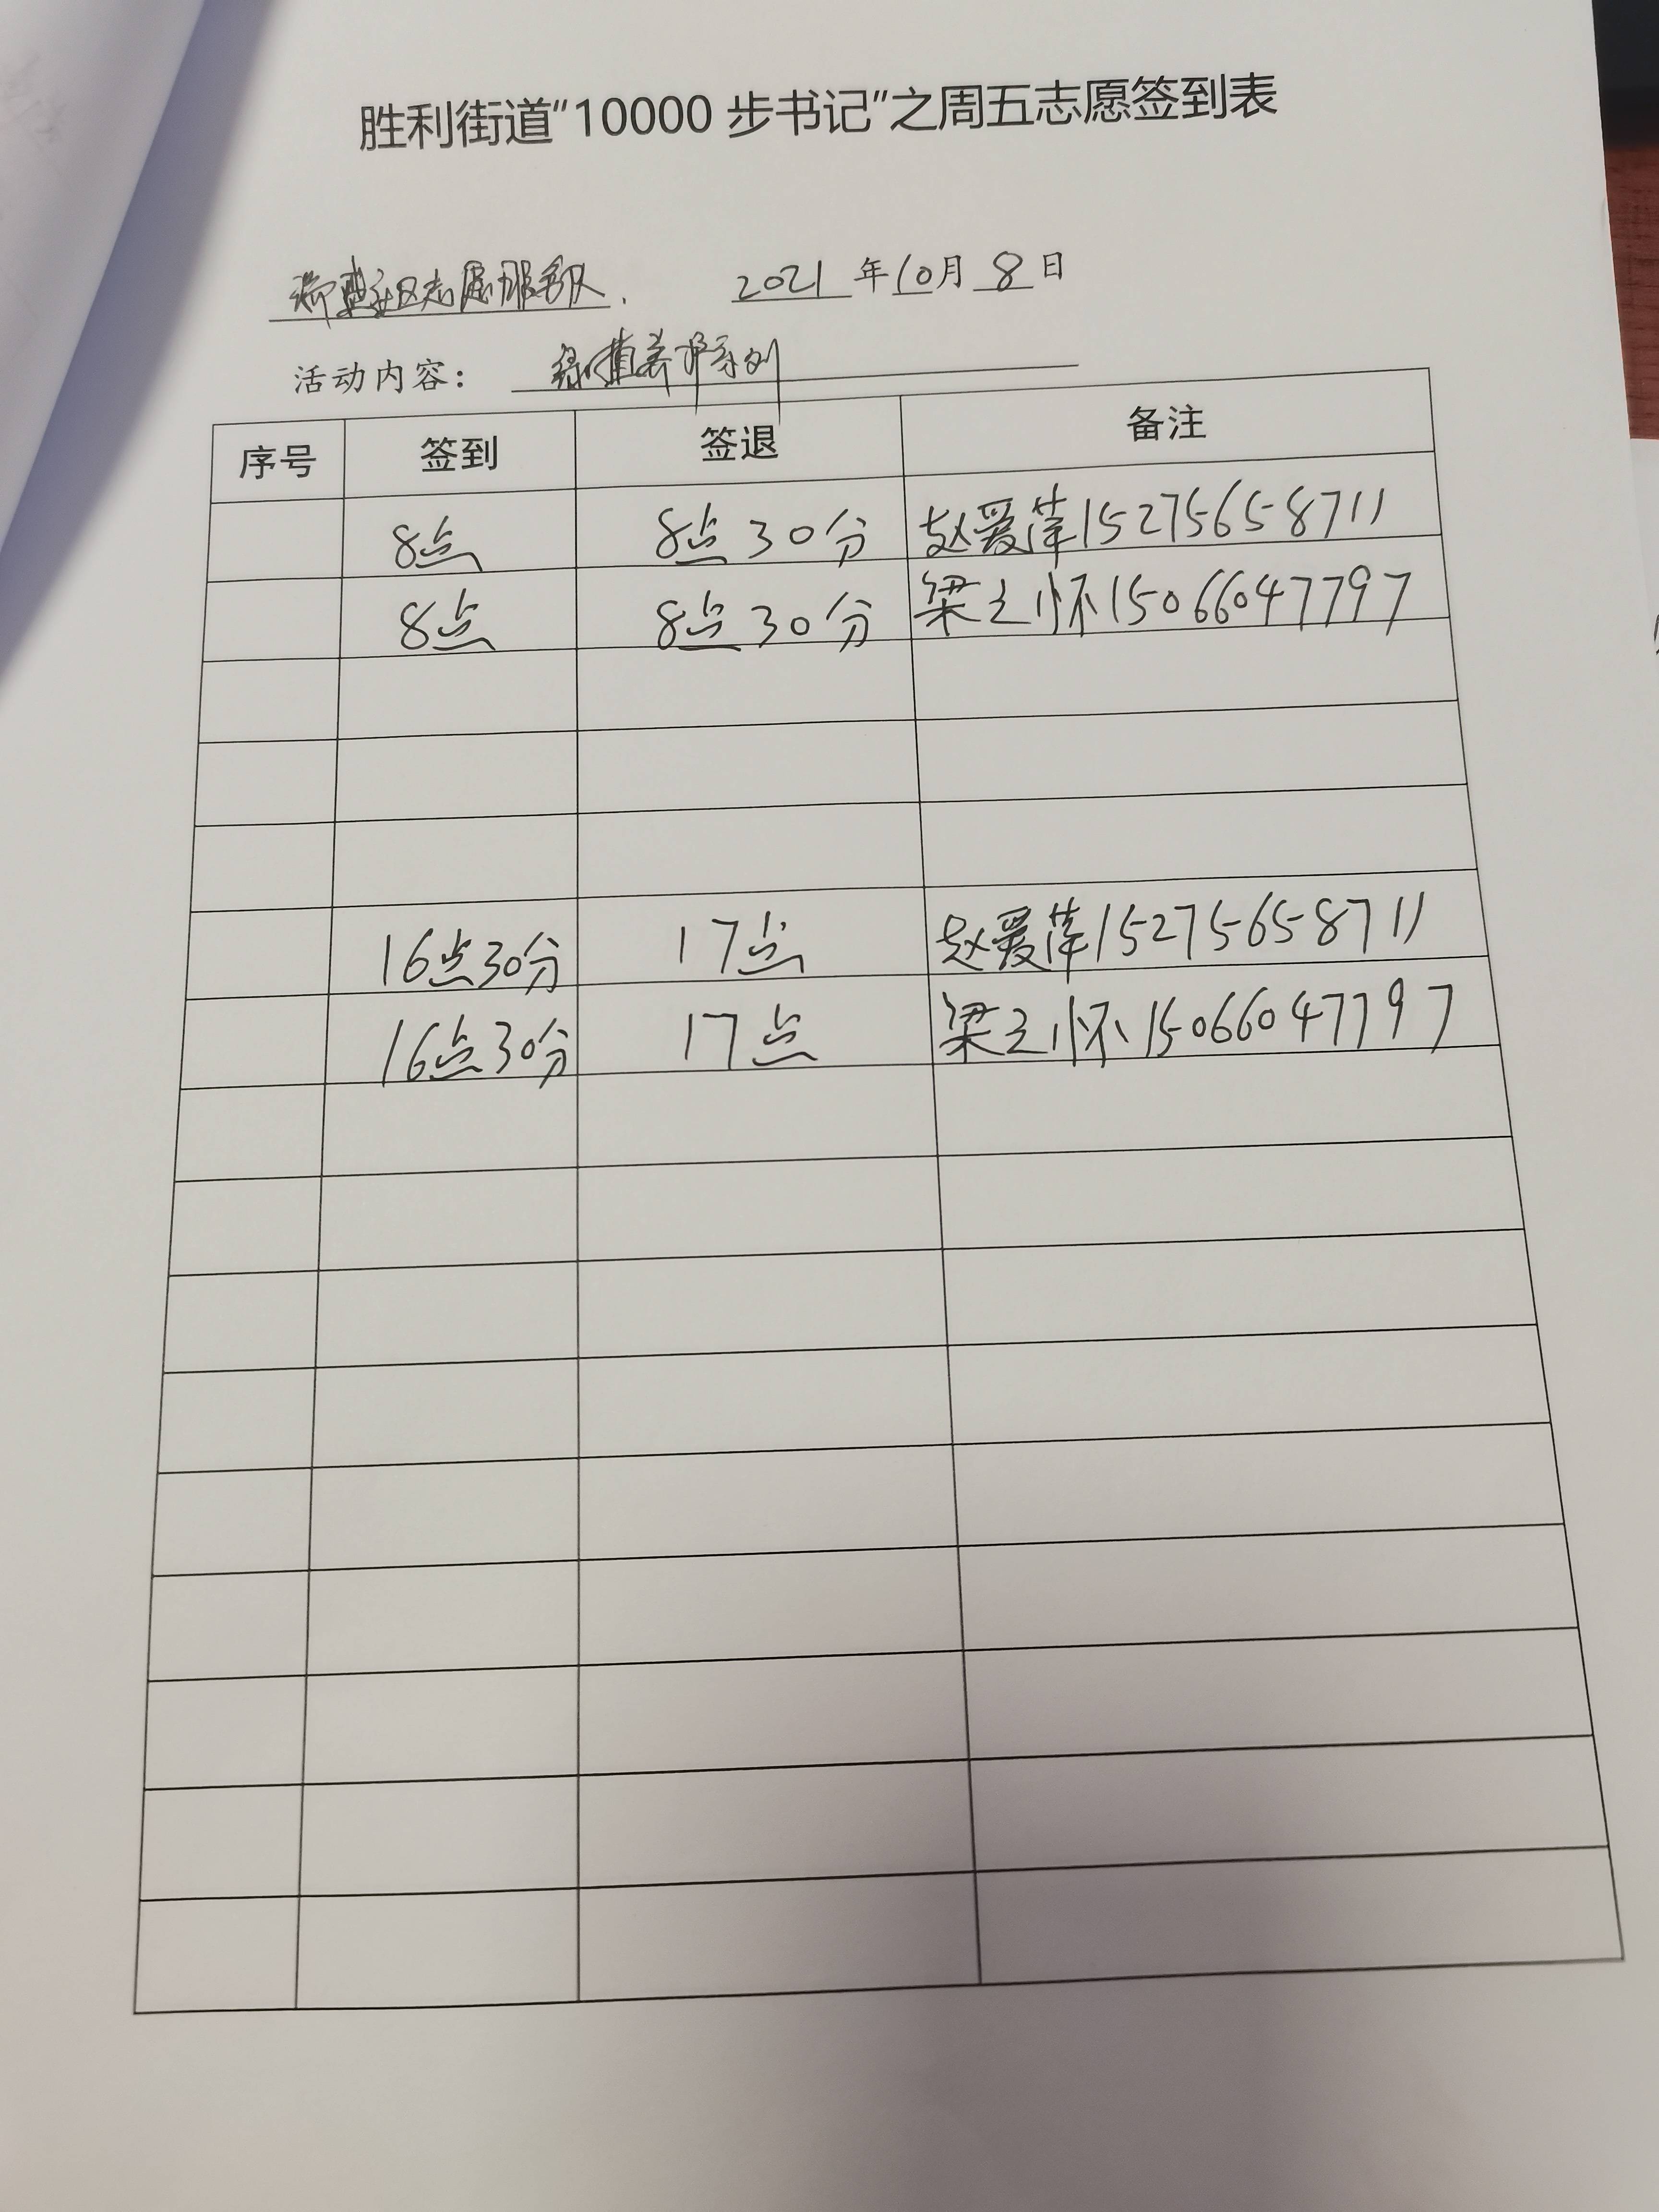 胜利街道“10000 步书记”之周五志愿签到表
社区志愿服务队. 2021 年 10 月 8 日
活动内容: 绿植养护系列
序号 签到 签退 备注
8点 8点30分 赵爱萍15275658711
8点 8点30分 梁之怀15066047797
16点30分 17点 赵爱萍15275658711
16点30分 17点 梁之怀15066047797